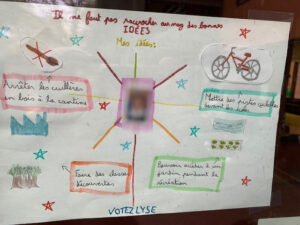 Il ne faut pas raccrocher au nez des bonnes
IDÉES
Mes idées:
Arrêter les cuillères
en bois à la cantine
Mettre des pistes cyclables
devant les écoles
Faire des classes
découvertes
Pouvoir accéder à un
jardin pendant la
récréation
VOTEZ LYSE